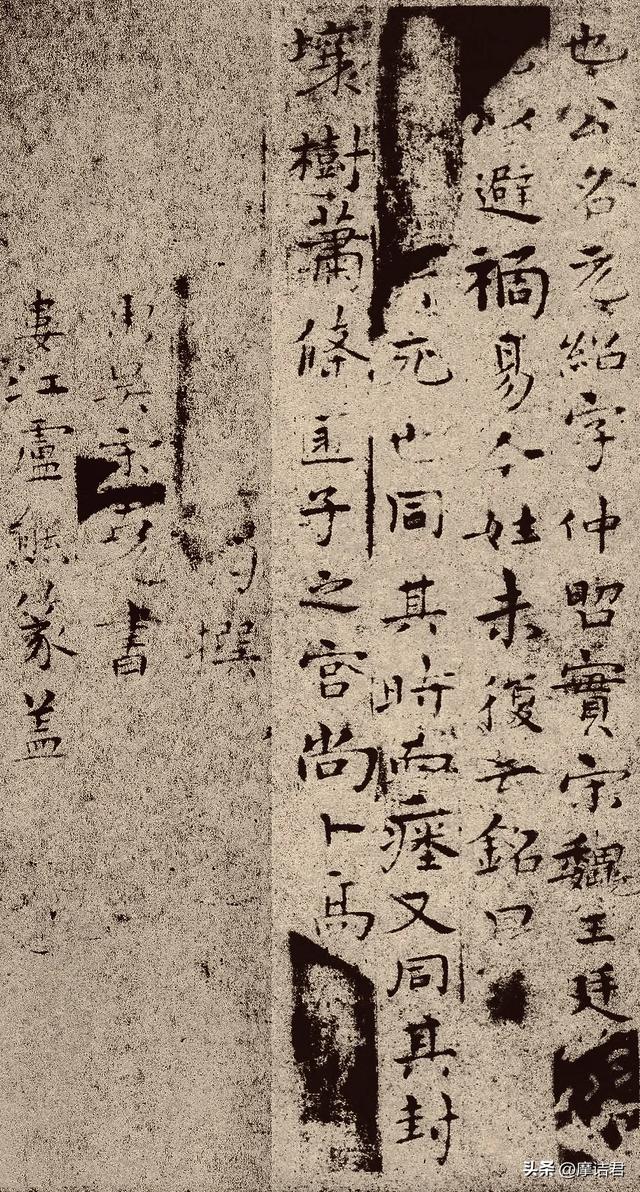 也公名元紹字仲昭實宋魏王廷
以避禍易今姓未復云銘曰
死也同其時而瘞又同其封
壤樹蕭條子之宮尚卜焉
撰
吳書
婁江盧熊篆蓋
头条 @摩诘君